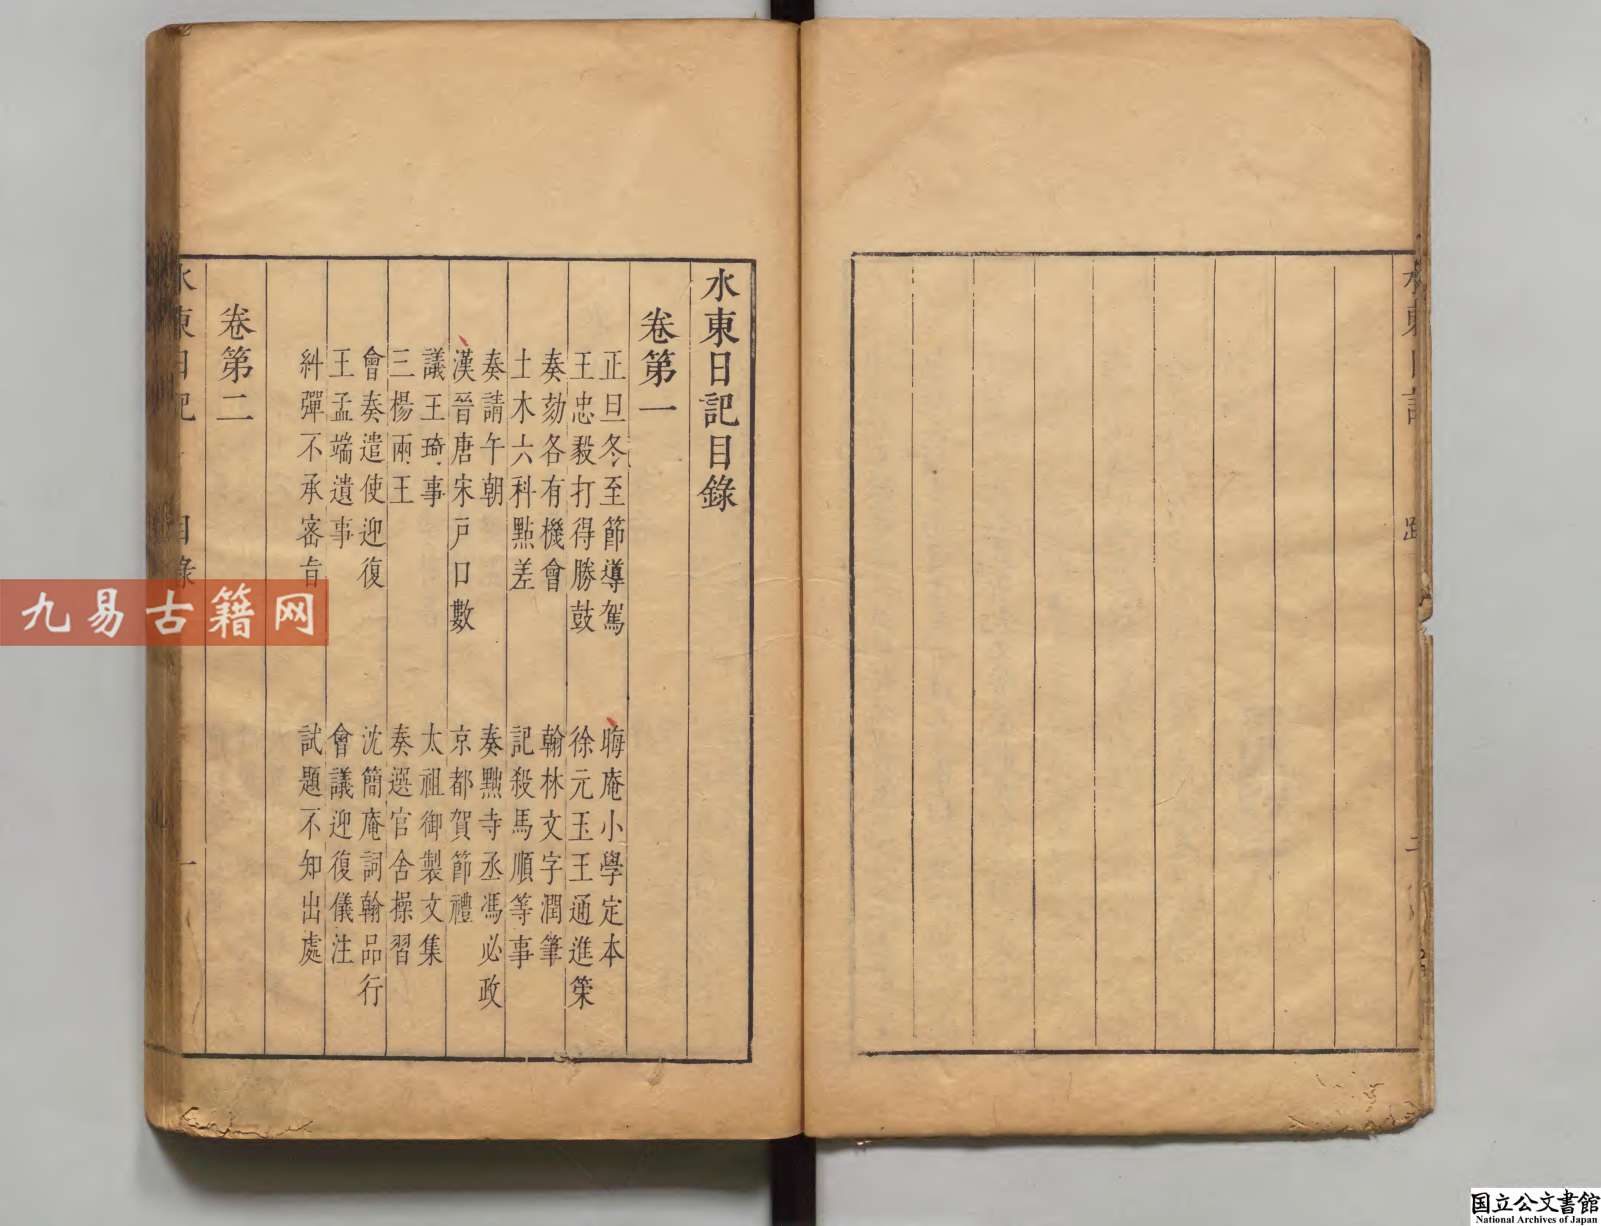 水東日記目錄
卷第一
正旦冬至節導駕
晦庵小學定本
王忠毅打得勝鼓
徐元玉王通進策
奏劾各有機會
翰林文字潤筆
土木六科點差
記殺馬順等事
奏請午朝
奏黜寺丞馮必政
漢晉唐宋戸口數
京都賀節禮
議王琦事
太祖御製文集
三楊兩王
奏選官舍操習
會奏遣使迎復
沈簡庵詞翰品行
王孟端遺事
會議迎復儀注
糾彈不承密旨
試題不知出處
卷第二
水東日記
目錄
一
九易古籍网
国立公文書館
National Archives of Japan